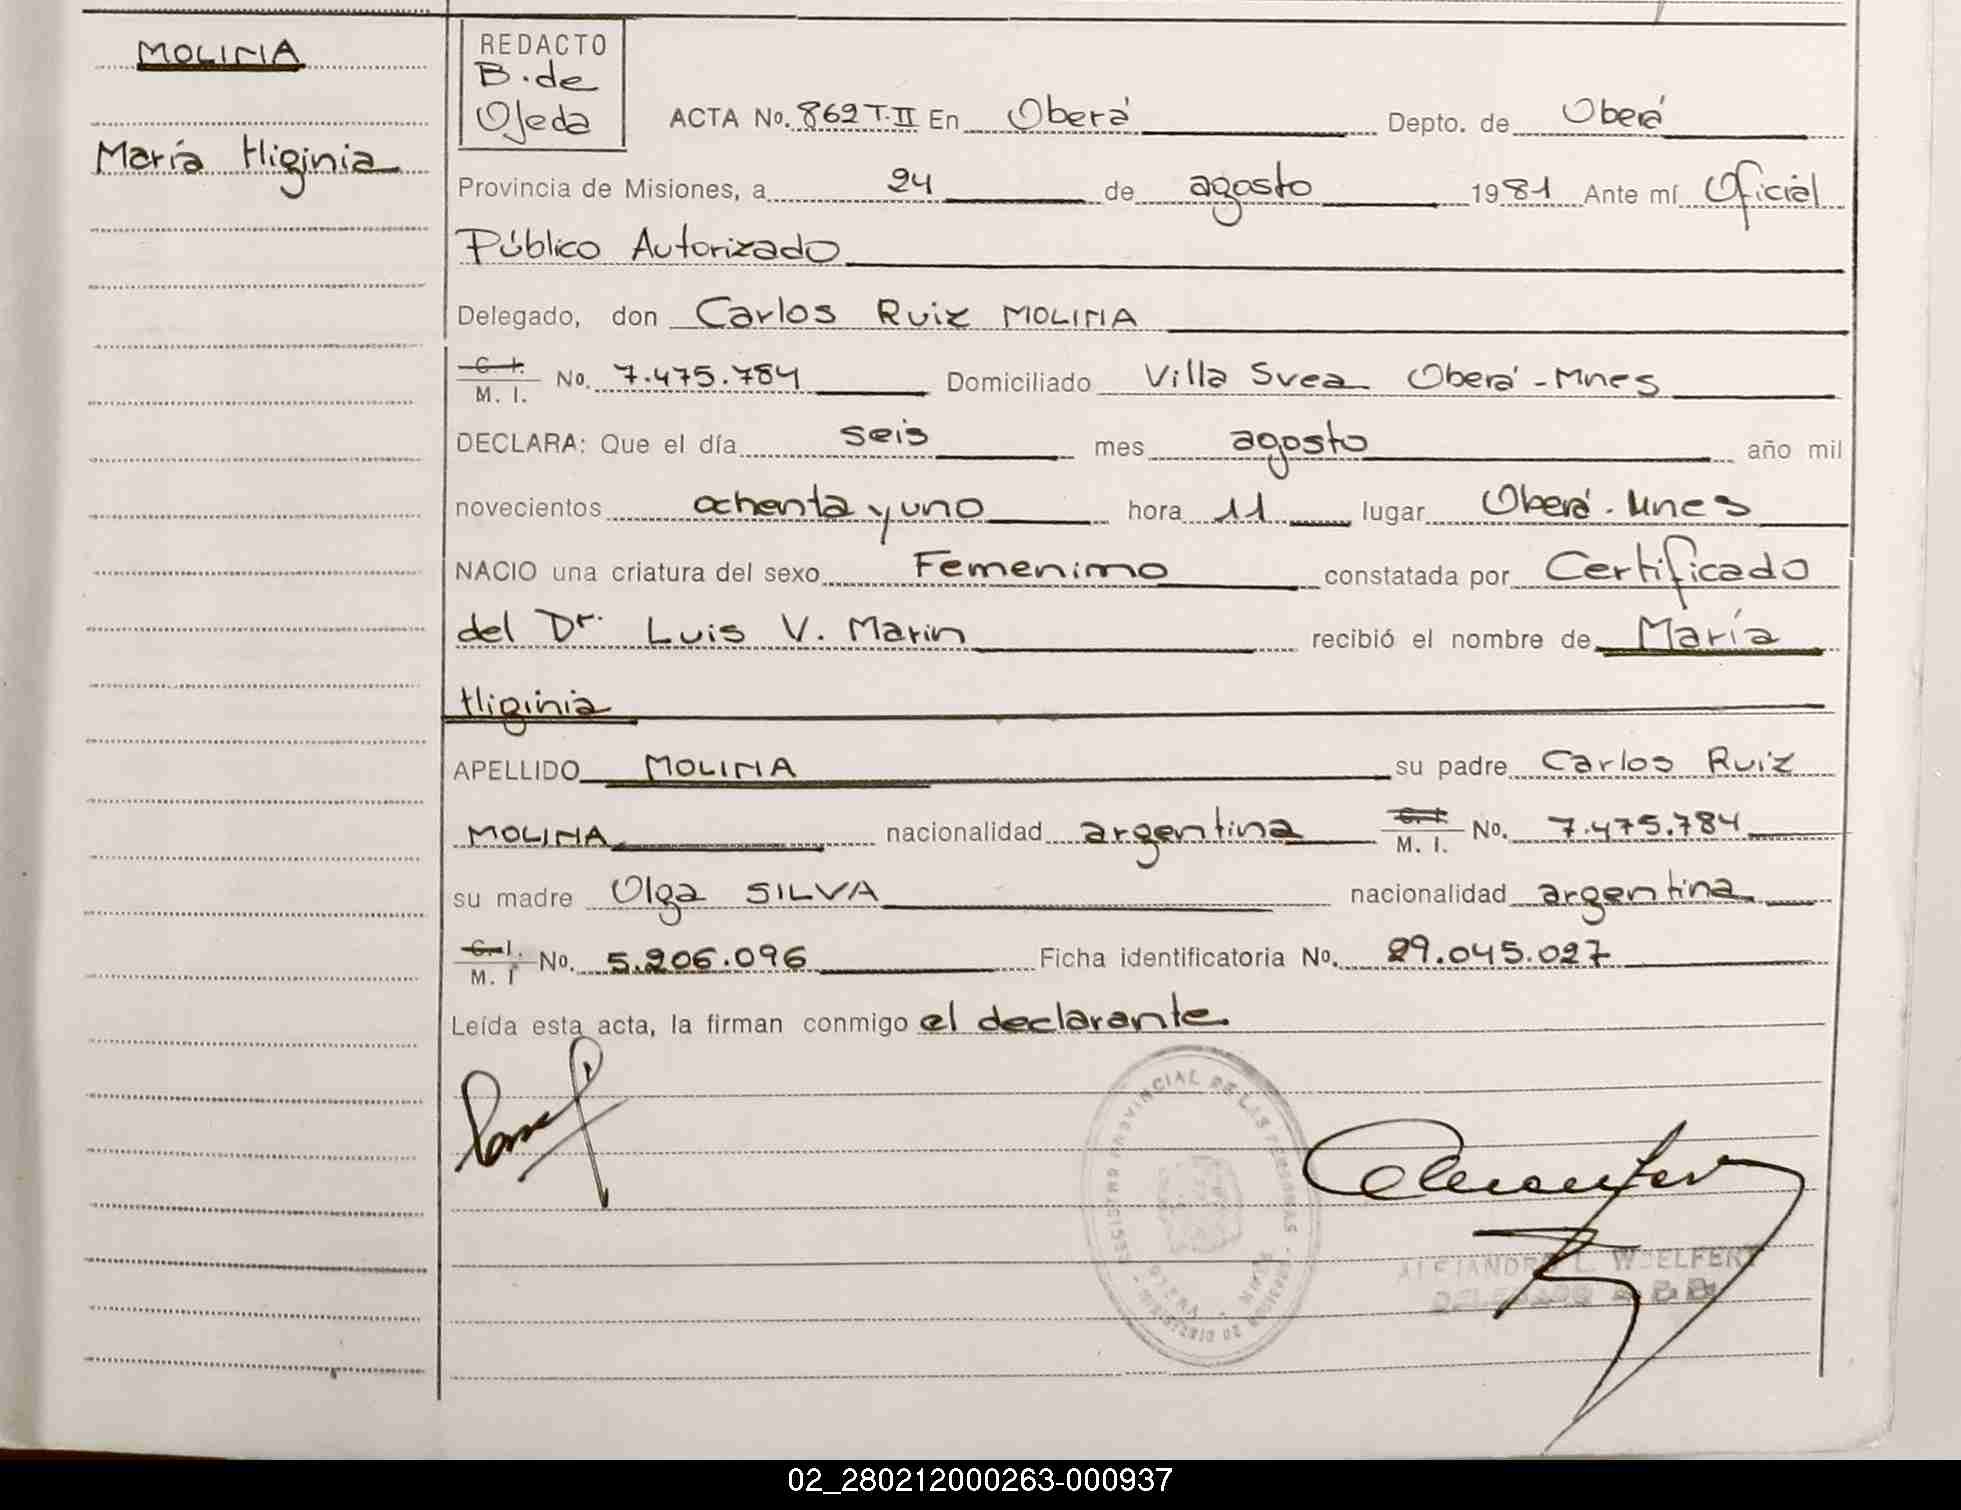 MOLINA
María Higinia
REDACTO
B. de
Ojeda
ACTA No. 862 T. II En Oberá Depto. de Oberá
Provincia de Misiones, a 24 de agosto 1981 Ante mí Oficial
Público Autorizado
Delegado, don Carlos Ruiz MOLINA
C. I.
M. I. No. 7.475.784 Domiciliado Villa Svea Oberá - Mnes
DECLARA: Que el día seis mes agosto año mil
novecientos ochenta y uno hora 11 lugar Oberá - Mnes
NACIO una criatura del sexo Femenimo constatada por Certificado
del Dr. Luis V. Marin recibió el nombre de María
Higinia
APELLIDO MOLINA su padre Carlos Ruiz
MOLINA nacionalidad argentina C. I. M. I. No. 7.475.784
su madre Olga SILVA nacionalidad argentina
C. I.
M. I No. 5.206.096 Ficha identificatoria No. 29.045.027
Leída esta acta, la firman conmigo el declarante
REGISTRO PROVINCIAL DE LAS PERSONAS
ALEJANDRO L. WOELFERT
DELEGADO
02_280212000263-000937